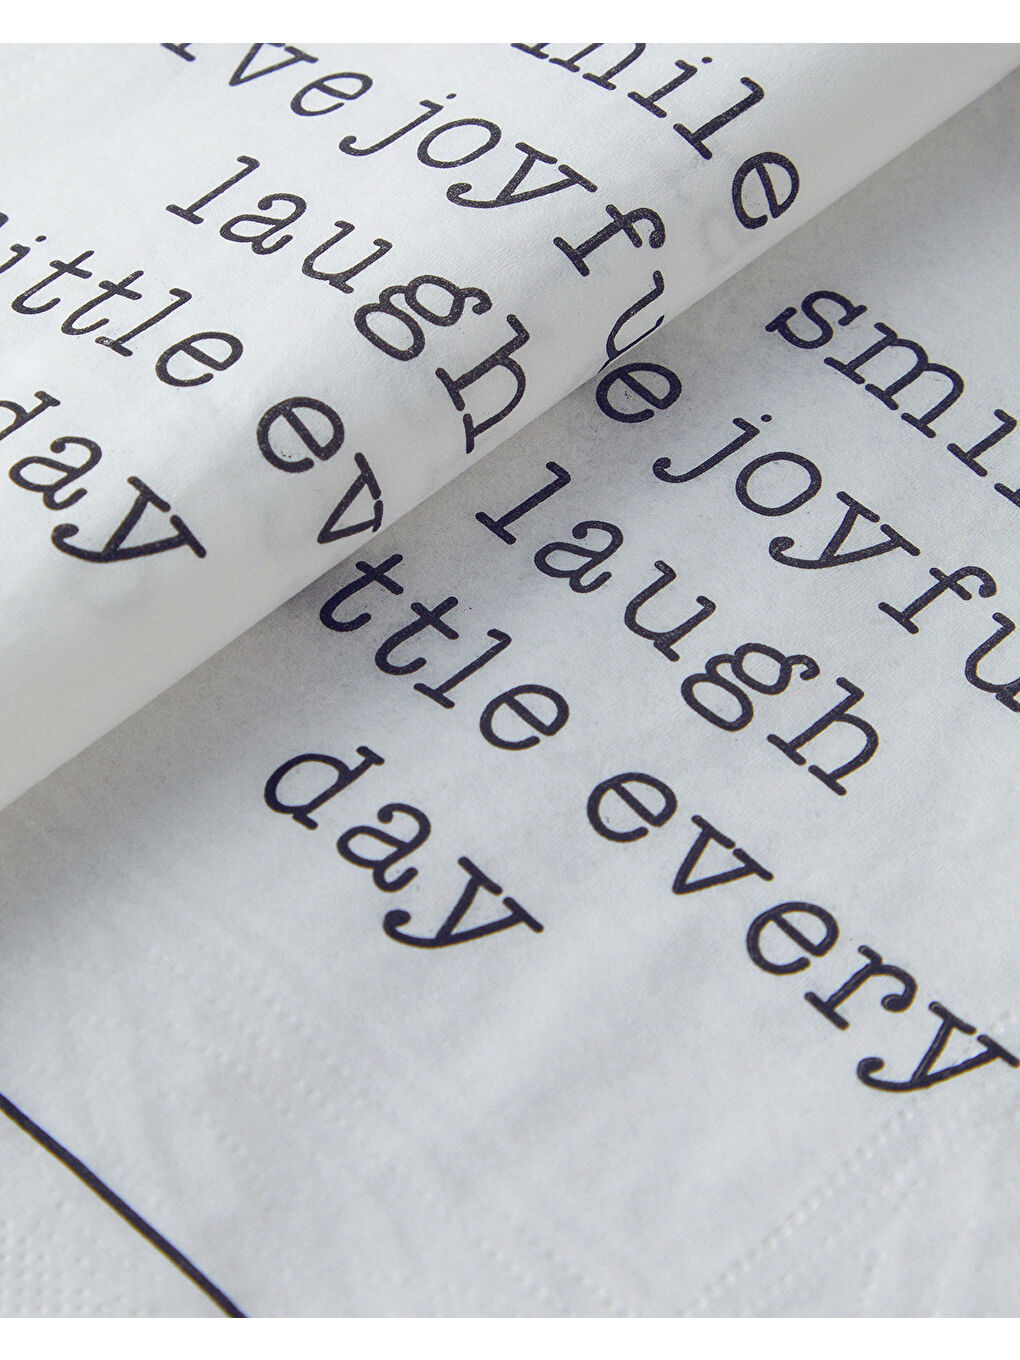 smile
ve joyfu
laugh
ittle ev
day
smil
e joyfu
laugh
ttle every
day